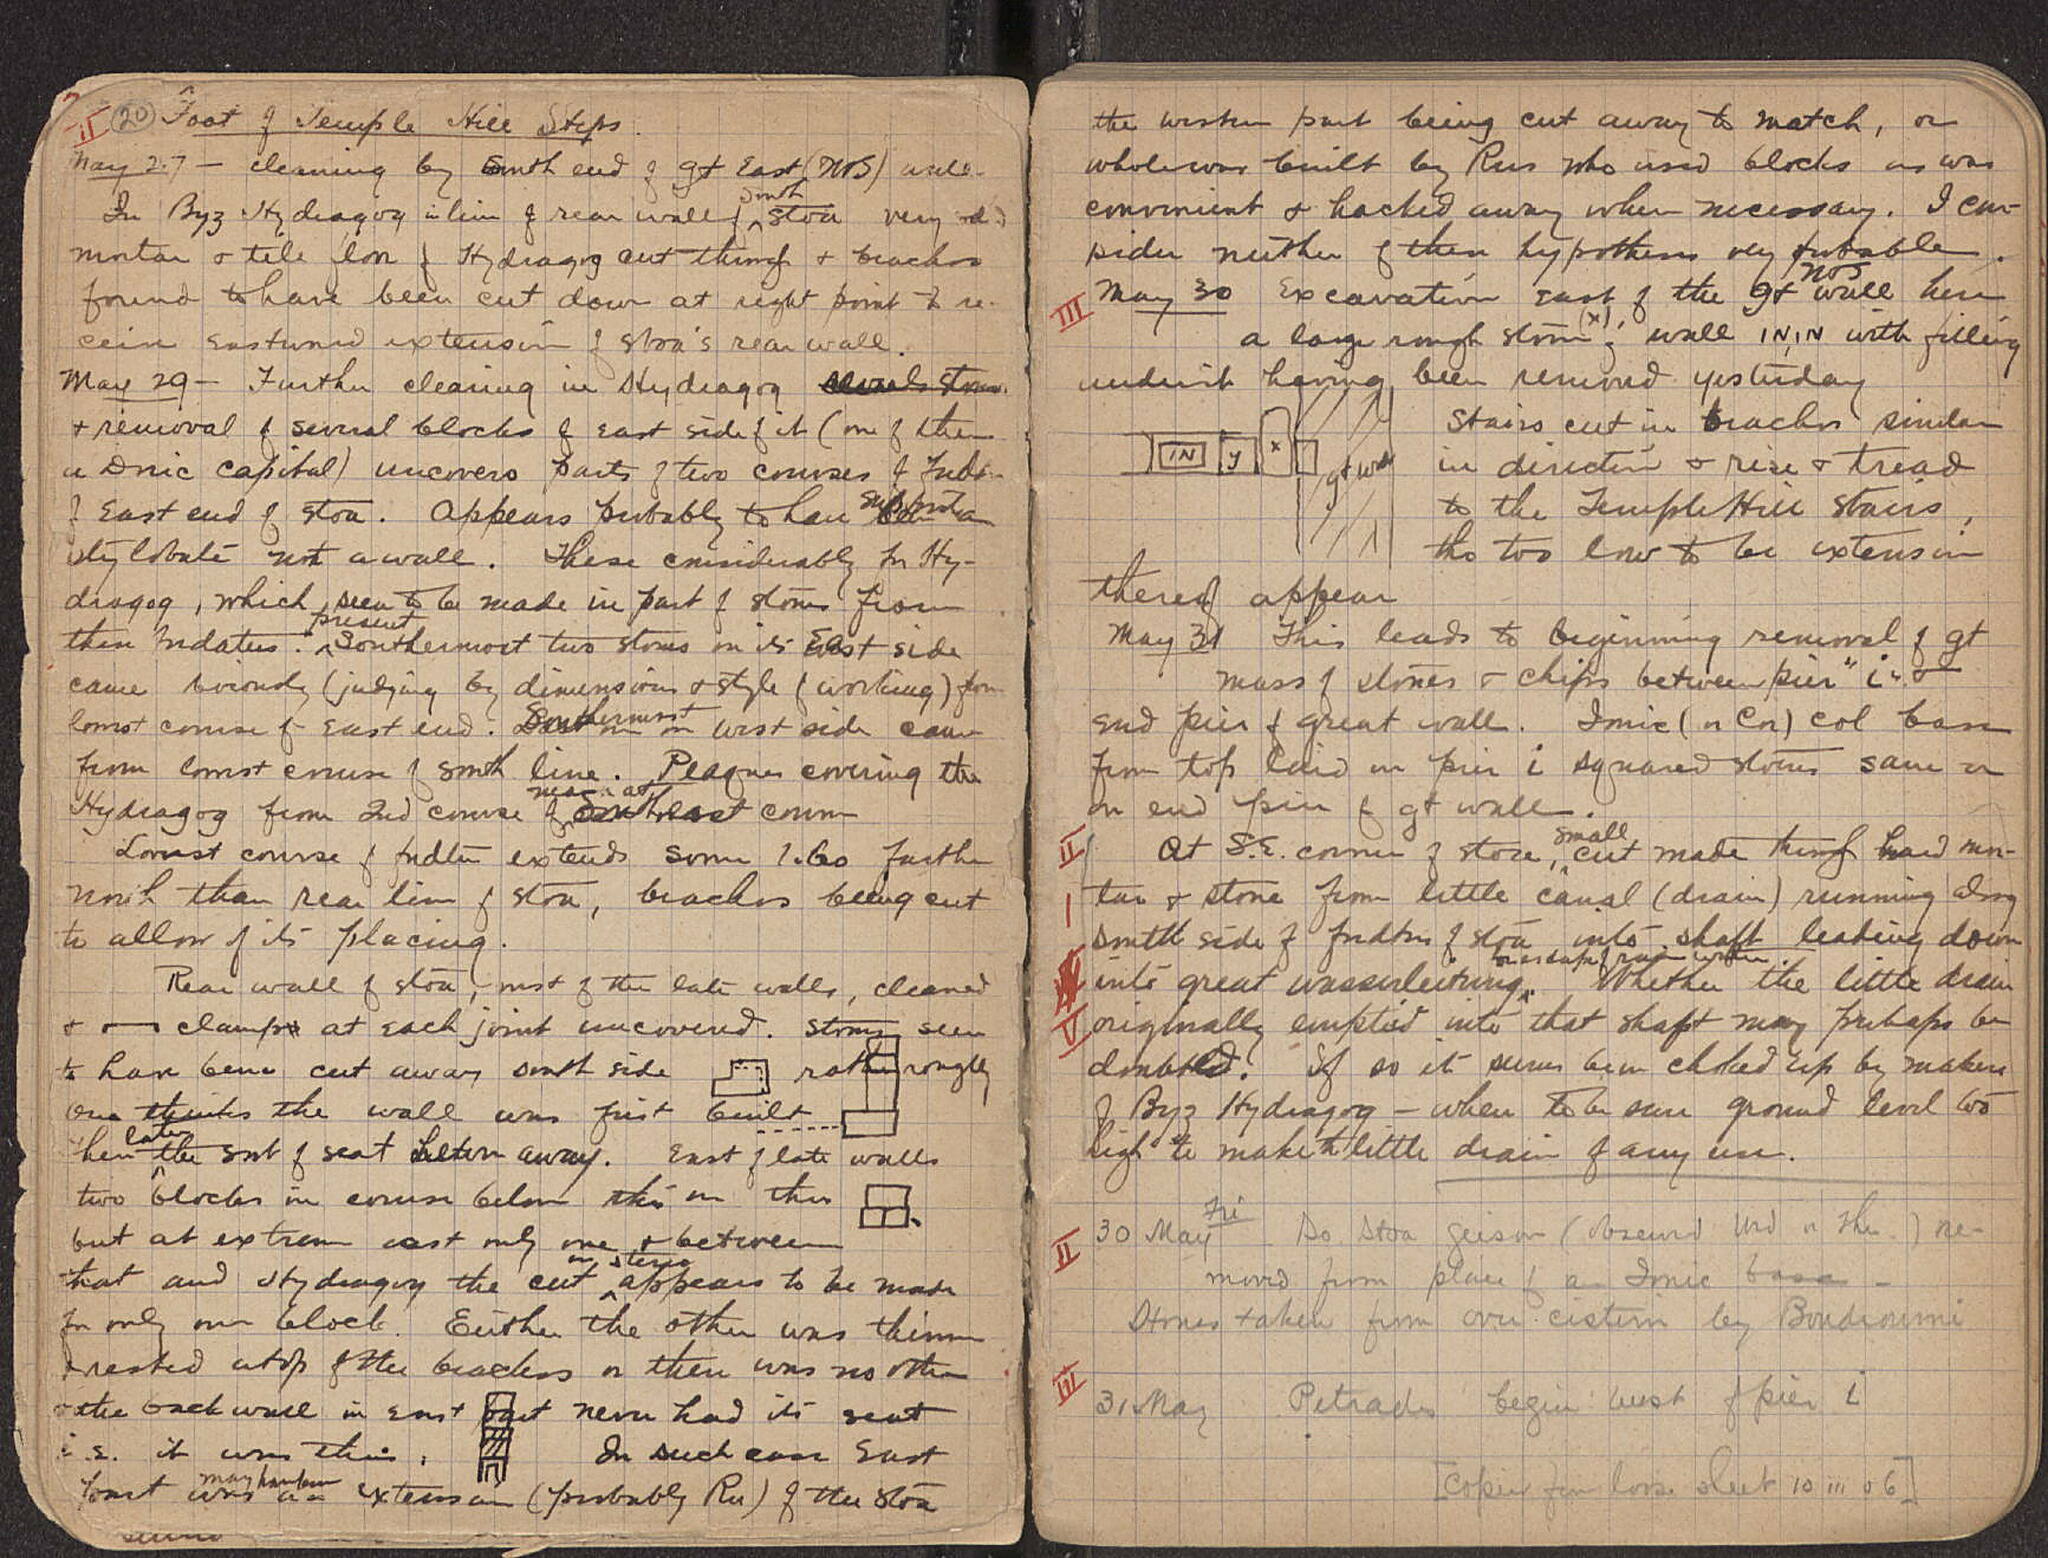 II 20 Foot of Temple Hill Steps.
May 27 — cleaning by South end of gt East (N→S) wall.
In Byz Hydragog in line of rear wall of south stoa very
mortar & tile floor of Hydragog cut through & brachos
found to have been cut down at right point to re-
ceive eastward extension of stoa's rear wall.
May 29 — Further clearing in Hydragog several stones
& removal of several blocks of east side of it (one of them
a Doric capital) uncovers parts of two courses of fndtn
of East end of stoa. Appears probably to have support been a
stylobate not a wall. These considerably for Hy-
dragog, which seem to be made in part of stones from
then fndatns. Present Southernmost two stones on its East side
came seriously (judging by dimensions & style of working) from
lowest course of East end. Southernmost one on west side came
from lowest course of south line. Plaques covering the
Hydragog from 2nd course of near at southeast corner
Lowest course of fndtn extends some 1.60 further
north than rear line of stoa, brachos being cut
to allow of its placing.
Rear wall of stoa, most of the late walls, cleaned
& clamps at each joint uncovered. Stones seen
to have been cut away south side rather roughly
One thinks the wall was first built
then later the sort of seat hewn away. East of late walls
two blocks in course below this in thus
but at extreme east only one & between
that and Hydragog the cut in stereo appears to be made
for only one block. Either the other was thinner
& rested atop of the brachos or there was no other
& the back wall in east part never had its seat
i.e. it was thin. In such case East
part was may have been an extension (probably Rn) of the stoa
the western part being cut away to match, or
whole was built by Rns who used blocks as was
convenient & hacked away when necessary. I con-
sider neither of these hypotheses very probable.
III May 30 Excavation East of the gt N→S wall here
a large rough stone (x), of wall IN, IN with filling
under it having been removed yesterday
IN y x gt wall
Stairs cut in brachos similar
in direction & rise & tread
to the Temple Hill stairs,
tho too low to be extension
thereof appear
May 31 This leads to beginning removal of gt
mass of stones & chips between pier "i" &
end pier of great wall. Ionic (or Cor) col base
from top laid on pier i squared stones same or
on end pier of gt wall.
II At S.E. corner of stoa, small cut made through hard mor-
tar & stone from little canal (drain) running along
south side of fndtns of stoa into shaft leading down
into great wasserleitung. Whether the little drain
V originally emptied into that shaft may perhaps be
doubted. If so it seems been choked up by makers
of Byz Hydragog — when to be sure ground level too
high to make th little drain of any use.
II 30 May Fri Do Stoa geison (observed Wd or Thu) re-
moved from place of an Ionic base —
Stones taken from over cistern by Boudroumi
III 31 May Petrades begin west of pier i
[Copied from loose sheet 10 III 06]